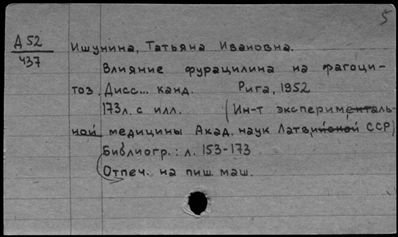 5
Д 52
437
Ишунина, Татьяна Ивановна.
Влияние фурацилина на фагоци-
тоз. Дисс... канд. Рига, 1952
173л. с илл. (Ин-т эксперименталь-
ной медицины Акад. наук Латвийской ССР)
Библиогр.: л. 153-173
Отпеч. на пиш. маш.